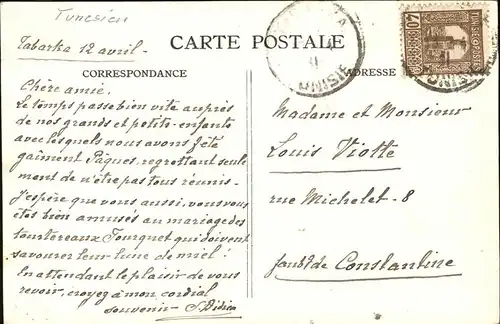 Tunesien
Tabarka 12 avril.
CARTE POSTALE
CORRESPONDANCE
ADRESSE
TUNISIE
40
Chère amie,
Le temps passe bien vite auprès
de nos grands et petits-enfants
avec lesquels nous avons fêté
gaiment Pâques, regrettant seule
ment de n'être pas tous réunis.
J'espère que vous aussi, vous vous
êtes bien amusés au mariage des
tourtereaux Fourguet qui doivent
savourer leur lune de miel!
En attendant le plaisir de vous
revoir, croyez à mon cordial
souvenir
Madame et Monsieur
Louis Viotte
rue Michelet - 8
faubg de Constantine